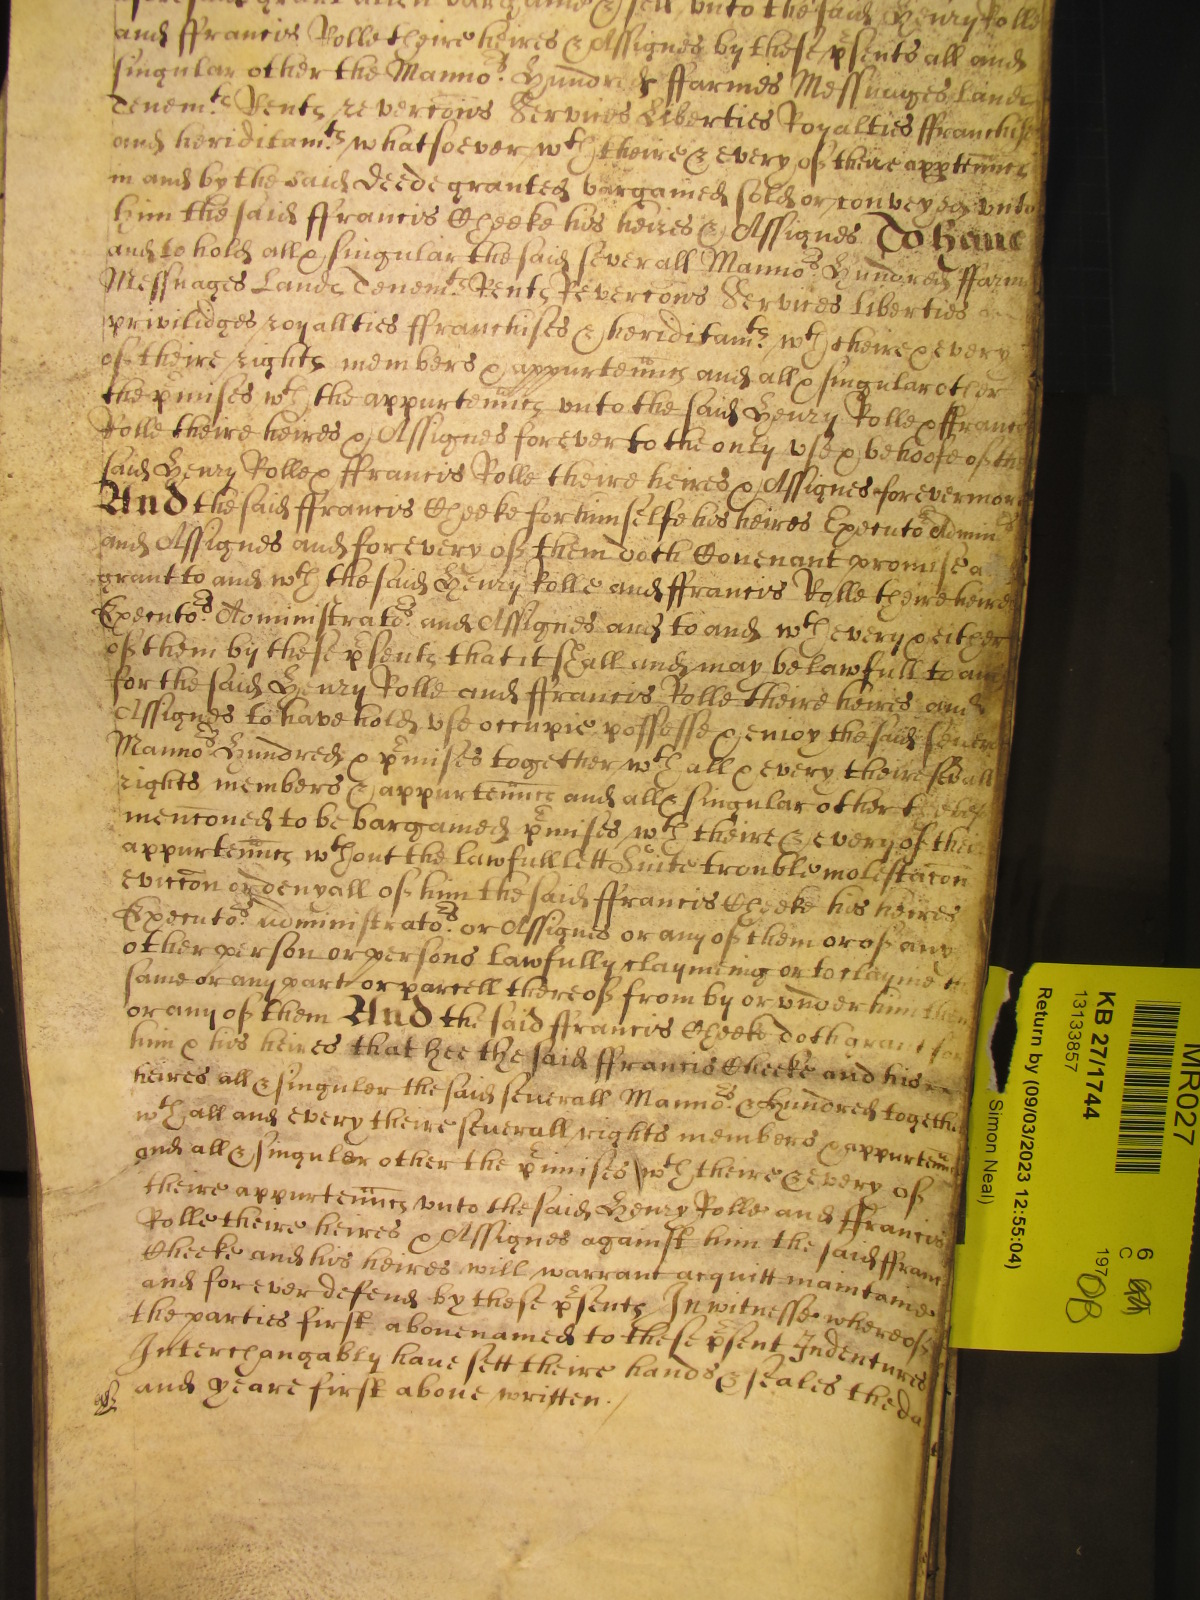 grant alien bargaine & sell unto the said Henry Rolle
and ffrancis Rolle theire heires & Assignes by these p̃sents all and
singular other the Manno.rs Hundreds ffarmes Messuages Lands
Tenem.ts Rents revercõns Services Liberties Royalties ffranchises
and heriditam.ts whatsoever wth theire & every of theire apptenn̄cs
in and by the said Deede granted bargained sold or conveyed unto
him the said ffrancis Cheeke his heires & Assignes To have
and to hold all & singular the said severall Manno.rs Hundred ffarm
Messuages Lands Tenem.ts Rents Revercõns Services Liberties
privilidges royallties ffranchises & heriditam.ts wth theire & every
of theire rights members & appurtenn̄cs and all & singular other
the p̃mises wth the appurtenn̄cs unto the said Henry Rolle & ffrancis
Rolle theire heires & Assignes for ever to the only use & behoofe of the
said Henry Rolle & ffrancis Rolle theire heires & Assignes for evermore
And the said ffrancis Cheeke for himselfe his heires Executo.rs Admin
and Assignes and for every of them doth Covenant promise a
grant to and wth the said Henry Rolle and ffrancis Rolle theire heires
Executo.rs Administrato.rs and Assignes and to and wth every & either
of them by these p̃sents that it shall and may be lawfull to and
for the said Henry Rolle and ffrancis Rolle theire heires and
Assignes to have hold use occupie possesse & enioy the said severa
Manno.rs Hundred & p̃mises together wth all & every theire sev̄all
rights members & appurtenn̄cs and all & singular other
menc̃oned to be bargained p̃mises wth theire & every of their
appurtenn̄cs wthout the lawfull lett Suite trouble molestac̃on
evicc̃on or denyall of him the said ffrancis Cheeke his heires
Executo.rs Administrato.rs or Assignes or any of them or of any
other person or persons lawfully clayming or to clayme the
same or any part or parcell thereof from by or under him them
or any of them And the said ffrancis Cheeke doth grant for
him & his heires that hee the said ffrancis Cheeke and his
heires all & singuler the said severall Manno.rs & Hundred togethe
wth all and every theire severall rights members & appurtenn̄
and all & singuler other the p̃mises wth theire & every of
theire appurtenn̄cs unto the said Henry Rolle and ffrancis
Rolle theire heires & Assignes against him the said ffran
Cheeke and his heires will warrant acquitt maintaine
and for ever defend by these p̃sents In witnesse whereof
the parties first abovenamed to these p̃sent Indentures
Interchangably have sett theire hands & seales the da
and yeare first above written.
MR027
KB 27/1744
13133857
Return by (09/03/2023 12:55:04)
Simon Neal)
6
C
197